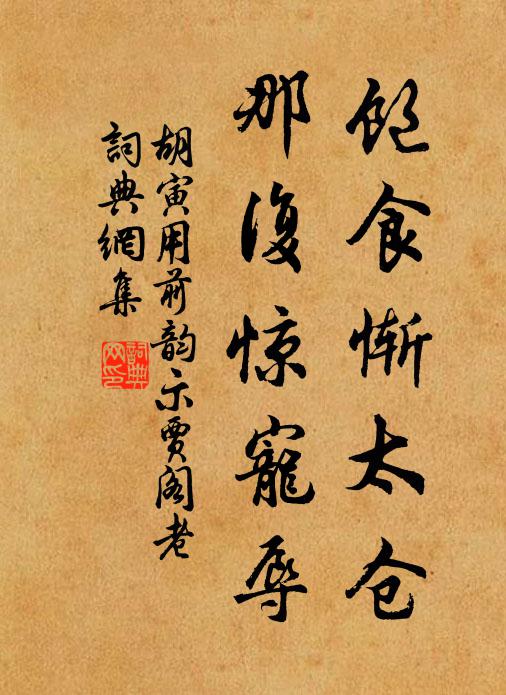 饱食惭太仓
那复惊寵辱
胡寅用前韵示贾阁老
詞典網集
詞典网印